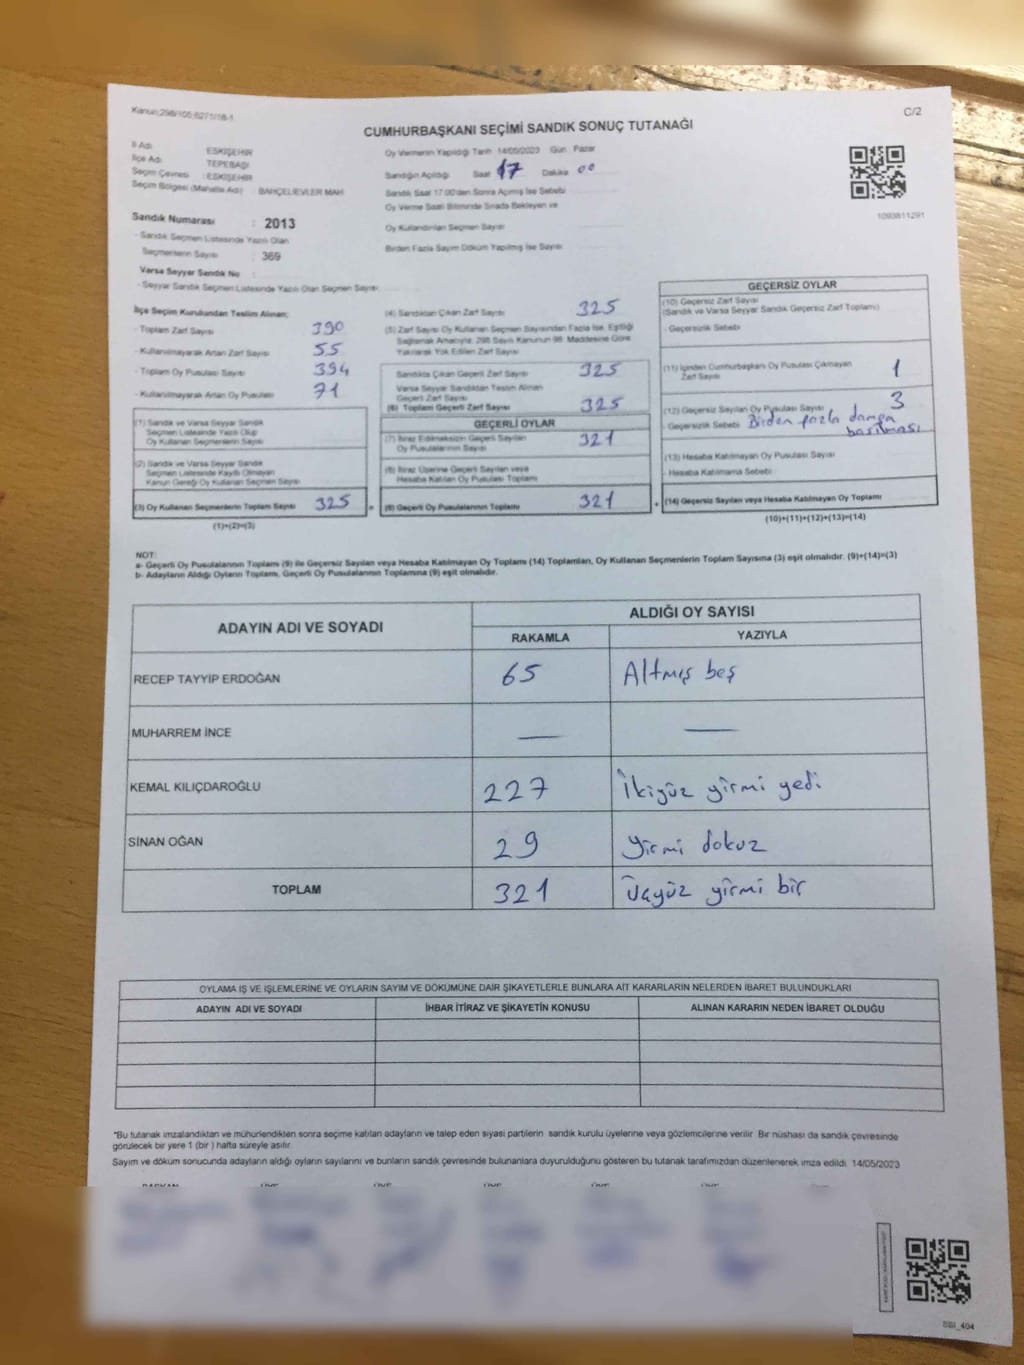 Kanun;298/105;6271/18-1
C/2
CUMHURBAŞKANI SEÇİMİ SANDIK SONUÇ TUTANAĞI
İl Adı : ESKİŞEHİR
İlçe Adı : TEPEBAŞI
Seçim Çevresi : ESKİŞEHİR
Seçim Bölgesi (Mahalle Adı) : BAHÇELİEVLER MAH
Sandık Numarası : 2013
- Sandık Seçmen Listesinde Yazılı Olan
Seçmenlerin Sayısı : 369
Varsa Seyyar Sandık No :
- Seyyar Sandık Seçmen Listesinde Yazılı Olan Seçmen Sayısı:
Oy Vermenin Yapıldığı Tarih 14/05/2023 Gün Pazar
Sandığın Açıldığı Saat 17 Dakika 00
Sandık Saat 17.00'den Sonra Açılmış İse Sebebi
Oy Verme Saati Bitiminde Sırada Bekleyen ve
Oy Kullandırılan Seçmen Sayısı
Birden Fazla Sayım Döküm Yapılmış İse Sayısı
1093811291
İlçe Seçim Kurulundan Teslim Alınan;
- Toplam Zarf Sayısı 390
- Kullanılmayarak Artan Zarf Sayısı 55
- Toplam Oy Pusulası Sayısı 394
- Kullanılmayarak Artan Oy Pusulası 71
(1) Sandık ve Varsa Seyyar Sandık
Seçmen Listesinde Yazılı Olup
Oy Kullanan Seçmenlerin Sayısı
(2) Sandık ve Varsa Seyyar Sandık
Seçmen Listesinde Kayıtlı Olmayan
Kanun Gereği Oy Kullanan Seçmen Sayısı
(3) Oy Kullanan Seçmenlerin Toplam Sayısı 325
(1)+(2)=(3)
(4) Sandıktan Çıkan Zarf Sayısı 325
(5) Zarf Sayısı Oy Kullanan Seçmen Sayısından Fazla İse, Eşitliği
Sağlamak Amacıyla; 298 Sayılı Kanunun 98. Maddesine Göre
Yakılarak Yok Edilen Zarf Sayısı
Sandıkta Çıkan Geçerli Zarf Sayısı 325
Varsa Seyyar Sandıktan Teslim Alınan
Geçerli Zarf Sayısı
(6) Toplam Geçerli Zarf Sayısı 325
GEÇERLİ OYLAR
(7) İtiraz Edilmeksizin Geçerli Sayılan
Oy Pusulalarının Sayısı 321
(8) İtiraz Üzerine Geçerli Sayılan veya
Hesaba Katılan Oy Pusulası Toplamı
(9) Geçerli Oy Pusulalarının Toplamı 321
GEÇERSİZ OYLAR
(10) Geçersiz Zarf Sayısı
(Sandık ve Varsa Seyyar Sandık Geçersiz Zarf Toplamı)
- Geçersizlik Sebebi
(11) İçinden Cumhurbaşkanı Oy Pusulası Çıkmayan
Zarf Sayısı 1
(12) Geçersiz Sayılan Oy Pusulası Sayısı 3
- Geçersizlik Sebebi Birden fazla damga
basılması
(13) Hesaba Katılmayan Oy Pusulası Sayısı
- Hesaba Katılmama Sebebi
(14) Geçersiz Sayılan veya Hesaba Katılmayan Oy Toplamı
(10)+(11)+(12)+(13)=(14)
NOT:
a- Geçerli Oy Pusulalarının Toplamı (9) ile Geçersiz Sayılan veya Hesaba Katılmayan Oy Toplamı (14) Toplamları, Oy Kullanan Seçmenlerin Toplam Sayısına (3) eşit olmalıdır. (9)+(14)=(3)
b- Adayların Aldığı Oyların Toplamı, Geçerli Oy Pusulalarının Toplamına (9) eşit olmalıdır.
ADAYIN ADI VE SOYADI ALDIĞI OY SAYISI
RAKAMLA YAZIYLA
RECEP TAYYİP ERDOĞAN 65 Altmış beş
MUHARREM İNCE — —
KEMAL KILIÇDAROĞLU 227 İkiyüz yirmi yedi
SİNAN OĞAN 29 yirmi dokuz
TOPLAM 321 üçyüz yirmi bir
OYLAMA İŞ VE İŞLEMLERİNE VE OYLARIN SAYIM VE DÖKÜMÜNE DAİR ŞİKAYETLERLE BUNLARA AİT KARARLARIN NELERDEN İBARET BULUNDUKLARI
ADAYIN ADI VE SOYADI İHBAR İTİRAZ VE ŞİKAYETİN KONUSU ALINAN KARARIN NEDEN İBARET OLDUĞU
*Bu tutanak imzalandıktan ve mühürlendikten sonra seçime katılan adayların ve talep eden siyasi partilerin sandık kurulu üyelerine veya gözlemcilerine verilir. Bir nüshası da sandık çevresinde
görülecek bir yere 1 (bir ) hafta süreyle asılır.
Sayım ve döküm sonucunda adayların aldığı oyların sayılarını ve bunların sandık çevresinde bulunanlara duyurulduğunu gösteren bu tutanak tarafımızdan düzenlenerek imza edildi. 14/05/2023
BAŞKAN ÜYE ÜYE ÜYE ÜYE ÜYE
SBI_404